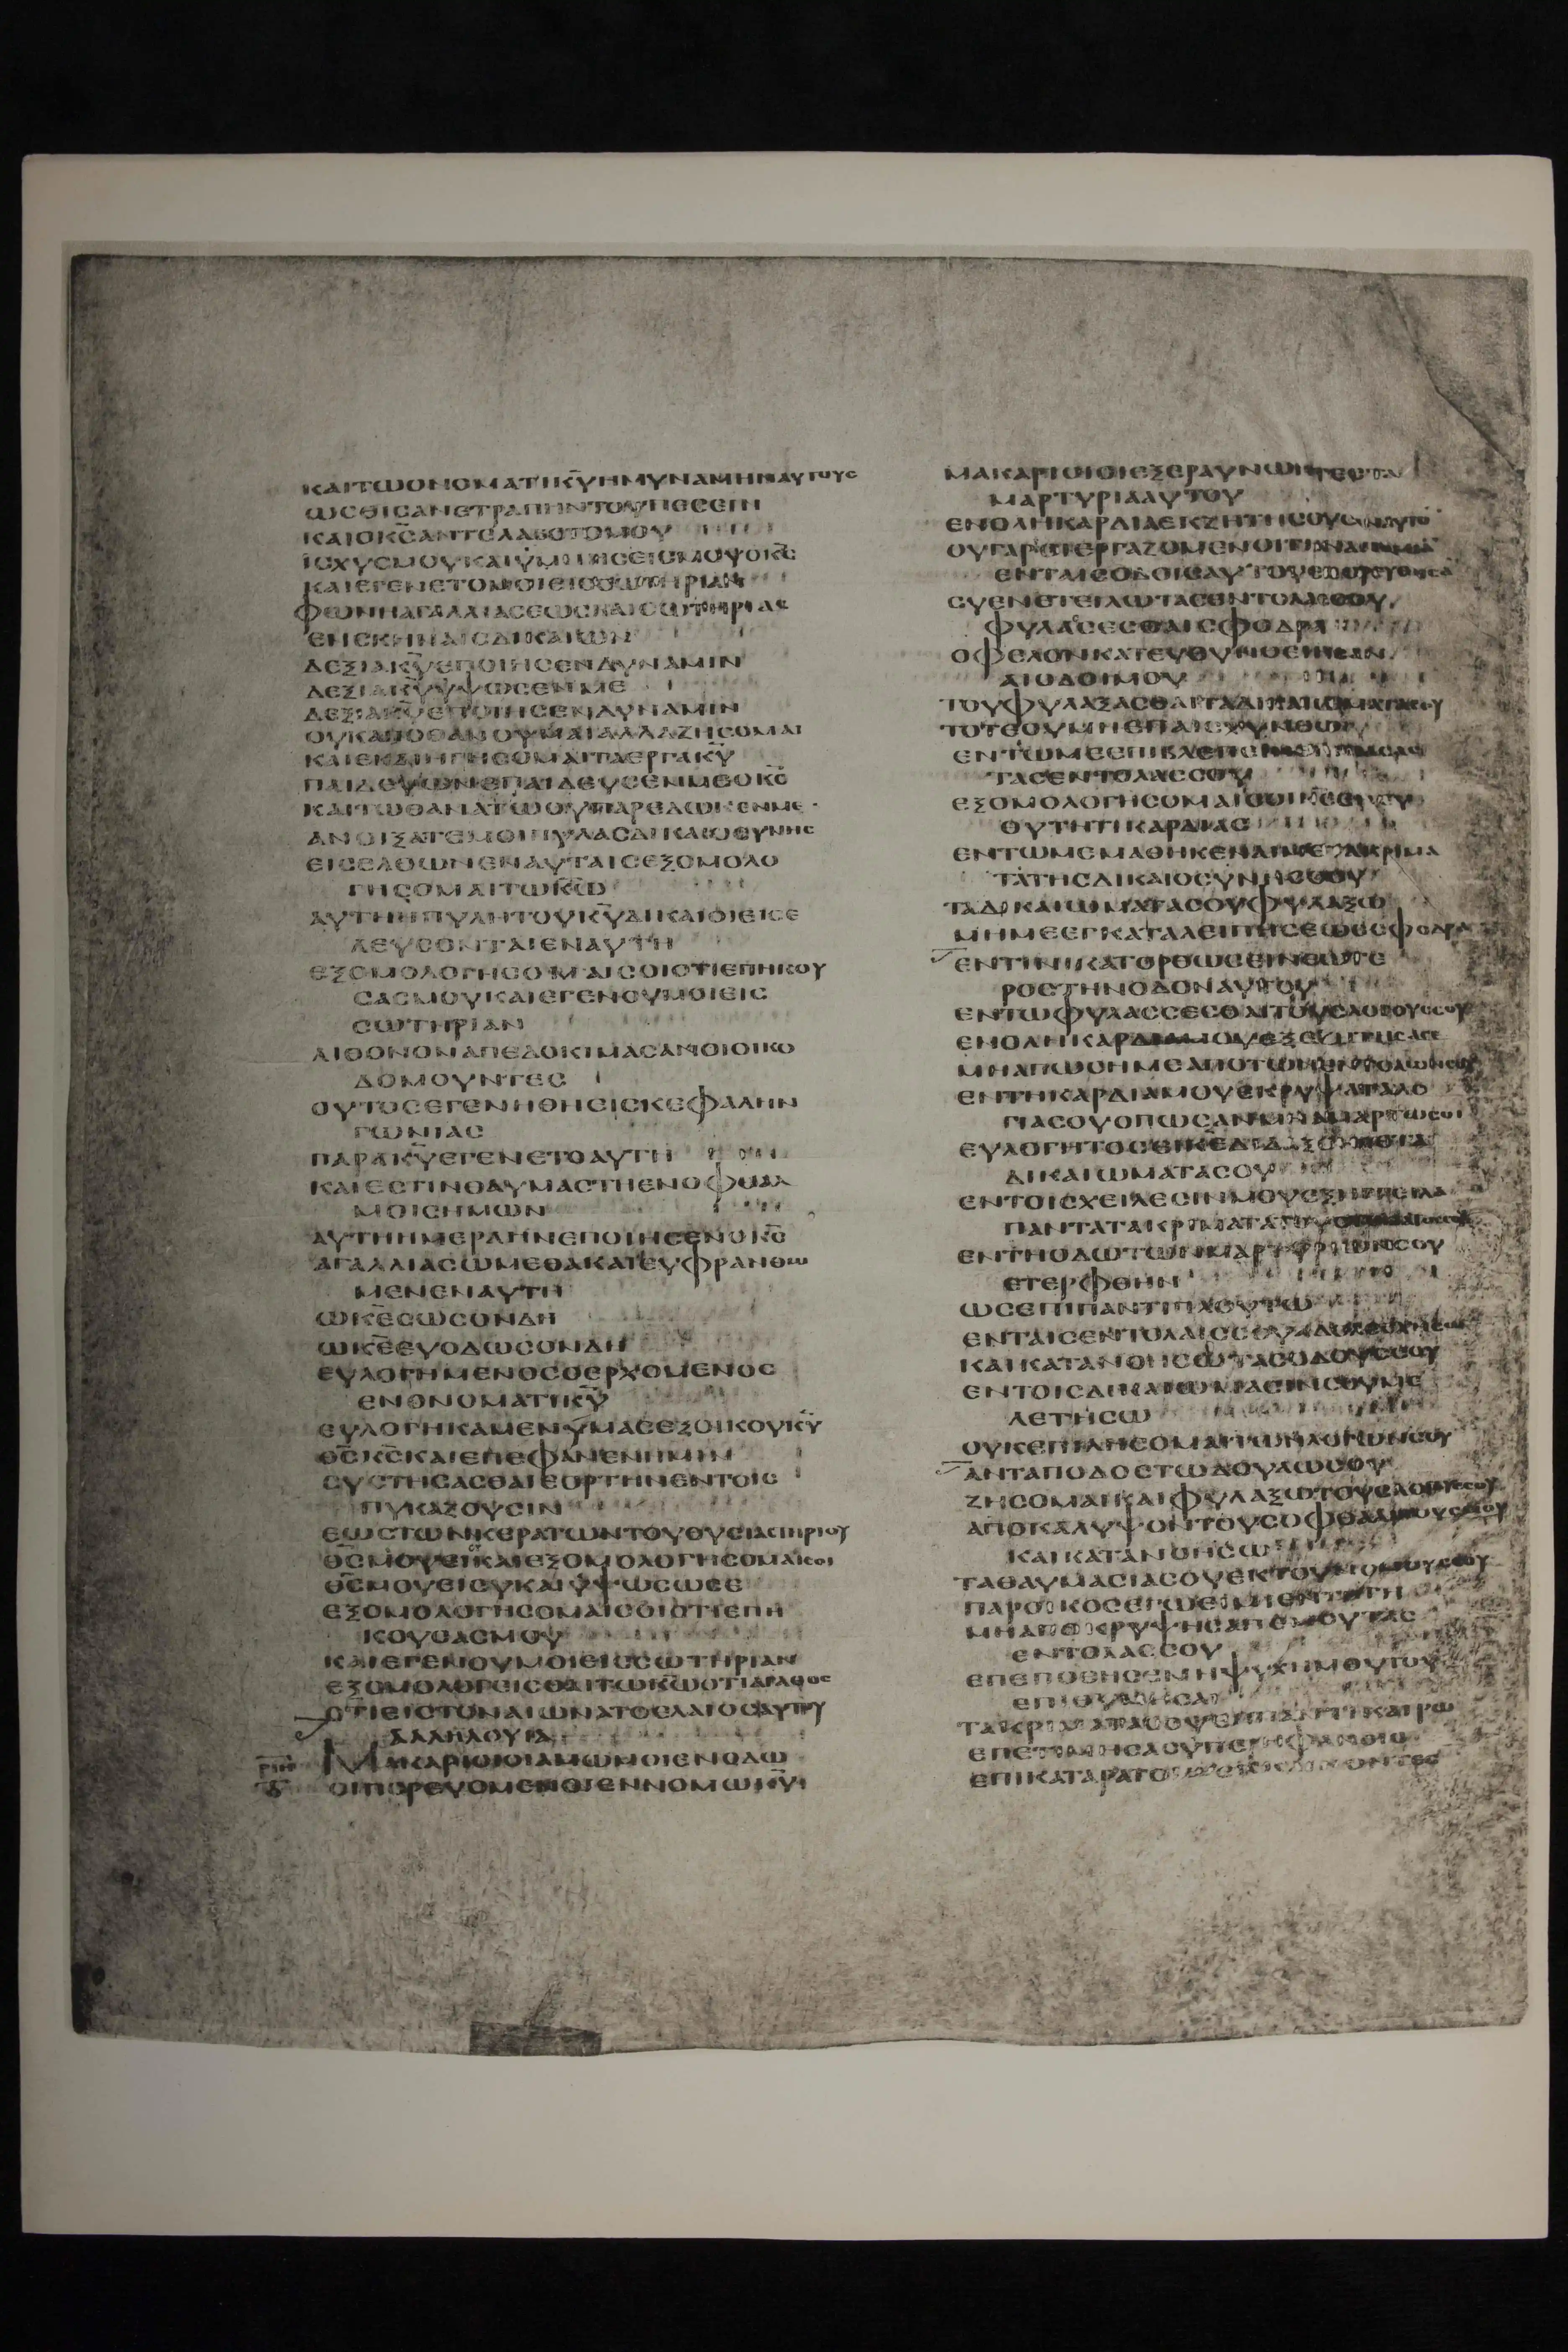 ΚΑΙΤΩΟΝΟΜΑΤΙΚΥΗΜΥΝΑΜΗΝΑΥΤΟΥΣ
ΩΣΘΙΣΑΝΕΤΡΑΠΗΝΤΟΥΠΕΣΕΙΝ
ΚΑΙΟΚΣΑΝΤΕΛΑΒΟΤΟΜΟΥ
ΙΣΧΥΣΜΟΥΚΑΙΥΜΝΗΣΕΙΣΜΟΥΟΚΣ
ΚΑΙΕΓΕΝΕΤΟΜΟΙΕΙΣΣΩΤΗΡΙΑΝ
ΦΩΝΗΑΓΑΛΛΙΑΣΕΩΣΚΑΙΣΩΤΗΡΙΑΣ
ΕΝΣΚΗΝΑΙΣΔΙΚΑΙΩΝ
ΔΕΞΙΑΚΥΕΠΟΙΗΣΕΝΔΥΝΑΜΙΝ
ΔΕΞΙΑΚΥΥΨΩΣΕΝΜΕ
ΔΕΞΙΑΚΥΕΠΟΙΗΣΕΝΔΥΝΑΜΙΝ
ΟΥΚΑΠΟΘΑΝΟΥΜΑΙΑΛΛΑΖΗΣΟΜΑΙ
ΚΑΙΕΚΔΙΗΓΗΣΟΜΑΙΤΑΕΡΓΑΚΥ
ΠΑΙΔΕΥΩΝΕΠΑΙΔΕΥΣΕΝΜΕΟΚΣ
ΚΑΙΤΩΘΑΝΑΤΩΟΥΠΑΡΕΔΩΚΕΝΜΕ
ΑΝΟΙΞΑΤΕΜΟΙΠΥΛΑΣΔΙΚΑΙΟΣΥΝΗΣ
ΕΙΣΕΛΘΩΝΕΝΑΥΤΑΙΣΕΞΟΜΟΛΟ
ΓΗΣΟΜΑΙΤΩΚΩ
ΑΥΤΗΗΠΥΛΗΤΟΥΚΥΔΙΚΑΙΟΙΕΙΣΕ
ΛΕΥΣΟΝΤΑΙΕΝΑΥΤΗ
ΕΞΟΜΟΛΟΓΗΣΟΜΑΙΣΟΙΟΤΙΕΠΗΚΟΥ
ΣΑΣΜΟΥΚΑΙΕΓΕΝΟΥΜΟΙΕΙΣ
ΣΩΤΗΡΙΑΝ
ΛΙΘΟΝΟΝΑΠΕΔΟΚΙΜΑΣΑΝΟΙΟΙΚΟ
ΔΟΜΟΥΝΤΕΣ
ΟΥΤΟΣΕΓΕΝΗΘΗΕΙΣΚΕΦΑΛΗΝ
ΓΩΝΙΑΣ
ΠΑΡΑΚΥΕΓΕΝΕΤΟΑΥΤΗ
ΚΑΙΕΣΤΙΝΘΑΥΜΑΣΤΗΕΝΟΦΘΑΛ
ΜΟΙΣΗΜΩΝ
ΑΥΤΗΗΜΕΡΑΗΝΕΠΟΙΗΣΕΝΟΚΣ
ΑΓΑΛΛΙΑΣΩΜΕΘΑΚΑΙΕΥΦΡΑΝΘΩ
ΜΕΝΕΝΑΥΤΗ
ΩΚΕΣΩΣΟΝΔΗ
ΩΚΕΕΥΟΔΩΣΟΝΔΗ
ΕΥΛΟΓΗΜΕΝΟΣΟΕΡΧΟΜΕΝΟΣ
ΕΝΟΝΟΜΑΤΙΚΥ
ΕΥΛΟΓΗΚΑΜΕΝΥΜΑΣΕΞΟΙΚΟΥΚΥ
ΘΣΚΣΚΑΙΕΠΕΦΑΝΕΝΗΜΙΝ
ΣΥΣΤΗΣΑΣΘΑΙΕΟΡΤΗΝΕΝΤΟΙΣ
ΠΥΚΑΖΟΥΣΙΝ
ΕΩΣΤΩΝΚΕΡΑΤΩΝΤΟΥΘΥΣΙΑΣΤΗΡΙΟΥ
ΘΣΜΟΥΕΙΚΑΙΕΞΟΜΟΛΟΓΗΣΟΜΑΙΣΟΙ
ΘΣΜΟΥΕΙΣΥΚΑΙΥΨΩΣΩΣΕ
ΕΞΟΜΟΛΟΓΗΣΟΜΑΙΣΟΙΟΤΙΕΠΗ
ΚΟΥΣΑΣΜΟΥ
ΚΑΙΕΓΕΝΟΥΜΟΙΕΙΣΣΩΤΗΡΙΑΝ
ΕΞΟΜΟΛΟΓΕΙΣΘΑΙΤΩΚΩΟΤΙΑΓΑΘΟΣ
ΟΤΙΕΙΣΤΟΝΑΙΩΝΑΤΟΕΛΑΙΟΣΑΥΤΟΥ
ΑΛΛΗΛΟΥΙΑ
ΡΙΗ ΜΑΚΑΡΙΟΙΟΙΑΜΩΜΟΙΕΝΟΔΩ
ΟΙΠΟΡΕΥΟΜΕΝΟΙΕΝΝΟΜΩΚΥ
ΜΑΚΑΡΙΟΙΟΙΕΞΕΡΑΥΝΩΝΤΕΣΤΑ
ΜΑΡΤΥΡΙΑΑΥΤΟΥ
ΕΝΟΛΗΚΑΡΔΙΑΕΚΖΗΤΗΣΟΥΣΙΝΑΥΤΟ
ΟΥΓΑΡΟΙΕΡΓΑΖΟΜΕΝΟΙΤΗΝΑΝΟΜΙΑ
ΕΝΤΑΙΣΟΔΟΙΣΑΥΤΟΥΕΠΟΡΕΥΘΗΣΑ
ΣΥΕΝΕΤΕΙΛΩΤΑΣΕΝΤΟΛΑΣΣΟΥ
ΦΥΛΑΣΕΣΘΑΙΣΦΟΔΡΑ
ΟΦΕΛΟΝΚΑΤΕΥΘΥΝΘΕΙΗΣΑΝ
ΑΙΟΔΟΙΜΟΥ
ΤΟΥΦΥΛΑΞΑΣΘΑΙΤΑΔΙΚΑΙΩΜΑΤΑΣΟΥ
ΤΟΤΕΟΥΜΗΕΠΑΙΣΧΥΝΘΩ
ΕΝΤΩΜΕΕΠΙΒΛΕΠΕΙΝΕΠΙΠΑΣΑΣ
ΤΑΣΕΝΤΟΛΑΣΣΟΥ
ΕΞΟΜΟΛΟΓΗΣΟΜΑΙΣΟΙΚΕΕΝΕΥ
ΘΥΤΗΤΙΚΑΡΔΙΑΣ
ΕΝΤΩΜΕΜΑΘΗΚΕΝΑΙΜΕΤΑΚΡΙΜΑ
ΤΑΤΗΣΔΙΚΑΙΟΣΥΝΗΣΣΟΥ
ΤΑΔΙΚΑΙΩΜΑΤΑΣΟΥΦΥΛΑΞΩ
ΜΗΜΕΕΓΚΑΤΑΛΕΙΠΗΣΕΩΣΣΦΟΔΡΑ
ΕΝΤΙΝΙΚΑΤΟΡΘΩΣΕΙΝΕΩΤΕ
ΡΟΣΤΗΝΟΔΟΝΑΥΤΟΥ
ΕΝΤΩΦΥΛΑΣΣΕΣΘΑΙΤΟΥΣΛΟΓΟΥΣΣΟΥ
ΕΝΟΛΗΚΑΡΔΙΑΜΟΥΕΞΕΖΗΤΗΣΑΣΕ
ΜΗΑΠΩΣΗΜΕΑΠΟΤΩΝΕΝΤΟΛΩΝΣΟΥ
ΕΝΤΗΚΑΡΔΙΑΜΟΥΕΚΡΥΨΑΤΑΛΟ
ΓΙΑΣΟΥΟΠΩΣΑΝΜΗΑΜΑΡΤΩΣΟΙ
ΕΥΛΟΓΗΤΟΣΕΙΚΕΔΙΔΑΞΟΝΜΕΤΑ
ΔΙΚΑΙΩΜΑΤΑΣΟΥ
ΕΝΤΟΙΣΧΕΙΛΕΣΙΝΜΟΥΕΞΗΓΓΕΙΛΑ
ΠΑΝΤΑΤΑΚΡΙΜΑΤΑΤΟΥΣΤΟΜΑΤΟΣΣΟΥ
ΕΝΤΗΟΔΩΤΩΝΜΑΡΤΥΡΙΩΝΣΟΥ
ΕΤΕΡΦΘΗΝ
ΩΣΕΠΙΠΑΝΤΙΠΛΟΥΤΩ
ΕΝΤΑΙΣΕΝΤΟΛΑΙΣΣΟΥΑΔΟΛΕΣΧΗΣΩ
ΚΑΙΚΑΤΑΝΟΗΣΩΤΑΣΟΔΟΥΣΣΟΥ
ΕΝΤΟΙΣΔΙΚΑΙΩΜΑΣΙΝΣΟΥΜΕ
ΛΕΤΗΣΩ
ΟΥΚΕΠΙΛΗΣΟΜΑΙΤΩΝΛΟΓΩΝΣΟΥ
ΑΝΤΑΠΟΔΟΣΤΩΔΟΥΛΩΣΟΥ
ΖΗΣΟΜΑΙΚΑΙΦΥΛΑΞΩΤΟΥΣΛΟΓΟΥΣΣΟΥ
ΑΠΟΚΑΛΥΨΟΝΤΟΥΣΟΦΘΑΛΜΟΥΣΜΟΥ
ΚΑΙΚΑΤΑΝΟΗΣΩ
ΤΑΘΑΥΜΑΣΙΑΣΟΥΕΚΤΟΥΝΟΜΟΥΣΟΥ
ΠΑΡΟΙΚΟΣΕΓΩΕΙΜΙΕΝΤΗΓΗ
ΜΗΑΠΟΚΡΥΨΗΣΑΠΕΜΟΥΤΑΣ
ΕΝΤΟΛΑΣΣΟΥ
ΕΠΕΠΟΘΗΣΕΝΗΨΥΧΗΜΟΥΤΟΥ
ΕΠΙΘΥΜΗΣΑΙ
ΤΑΚΡΙΜΑΤΑΣΟΥΕΝΠΑΝΤΙΚΑΙΡΩ
ΕΠΕΤΙΜΗΣΑΣΥΠΕΡΗΦΑΝΟΙΣ
ΕΠΙΚΑΤΑΡΑΤΟΙΟΙΕΚΚΛΙΝΟΝΤΕΣ